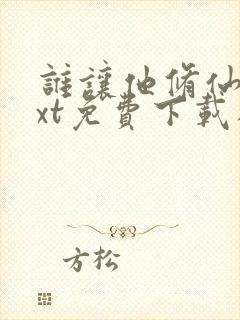 誰讓他脩仙
xt免費下載
方松